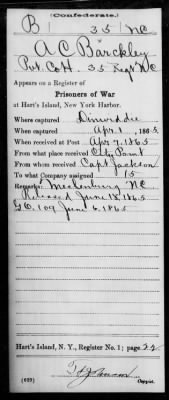 (Confederate.)
B 35 NC
A C Barckley
Pvt. Co H. 35 Regt NC
Appears on a Register of
Prisoners of War
at Hart's Island, New York Harbor.
Where captured Dinwiddie
When captured Apr 1, 1865.
When received at Post Apr 7, 1865
From what place received City Point
From whom received Capt Jackson
To what company assigned 15
Remarks: Mecklenburg NC.
Released June 18 1865
G.O. 109 June 6. 1865
Hart's Island, N. Y., Register No. 1; page 22
(639) Copyist.